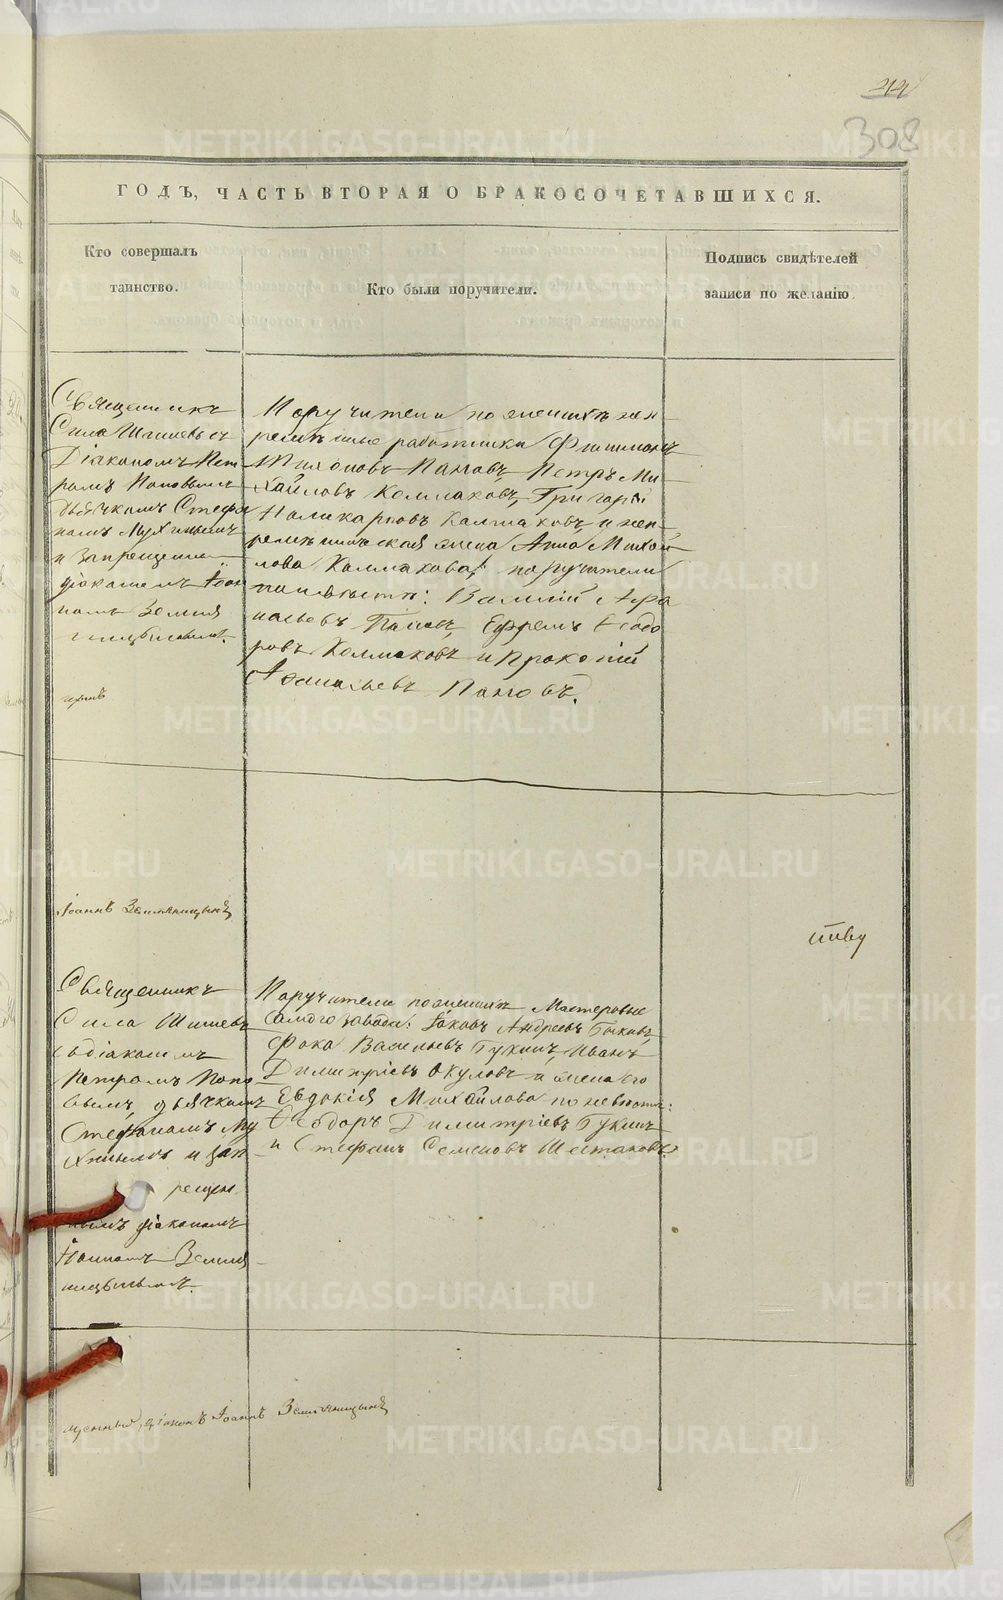 308
ГОДЪ, ЧАСТЬ ВТОРАЯ О БРАКОСОЧЕТАВШИХСЯ.
Кто совершалъ
таинство.
Кто были поручители.
Подпись свидѣтелей
записи по желанію.
Священникъ
Сила
Діакономъ Пет
ромъ Поповымъ
Дьячкомъ Стефа
номъ Мухинымъ
и запрещенны
діакономъ Іоан
номъ Земля
ницынымъ
Поручители по женихѣ неп
ремѣнные работники Филимонъ
Пановъ, Петръ Ми
хайловъ Колмаковъ, Григорій
Поликарповъ Калмаковъ и неп
ремѣнническая жена Анна Михай
лова Колмакова; поручители
по невѣстѣ: Василій Афа
насьевъ Пановъ, Ефремъ Ѳеодо
ровъ Колмаковъ и Прокопій
Афанасьевъ Пановъ.
Іоаннъ Земляницынъ
Священникъ
Сила
съ діакономъ
Петромъ Попо
вымъ, дьячкомъ
Стефаномъ Му
хинымъ и зап
рещен
нымъ діакономъ
Іоанномъ Земля
ницынымъ.
Поручители по женихѣ Мастеровые
сего завода: Іаковъ Андреевъ Быковъ,
Фока Васильевъ Букинъ, Иванъ
Димитріевъ Окуловъ и жена его
Евдокія Михайлова по невѣстѣ:
Ѳеодоръ Димитріевъ Букинъ
и Стефанъ Семеновъ Шестаковъ.
діаконъ Іоаннъ Земляницынъ
METRIKI.GASO-URAL.RU